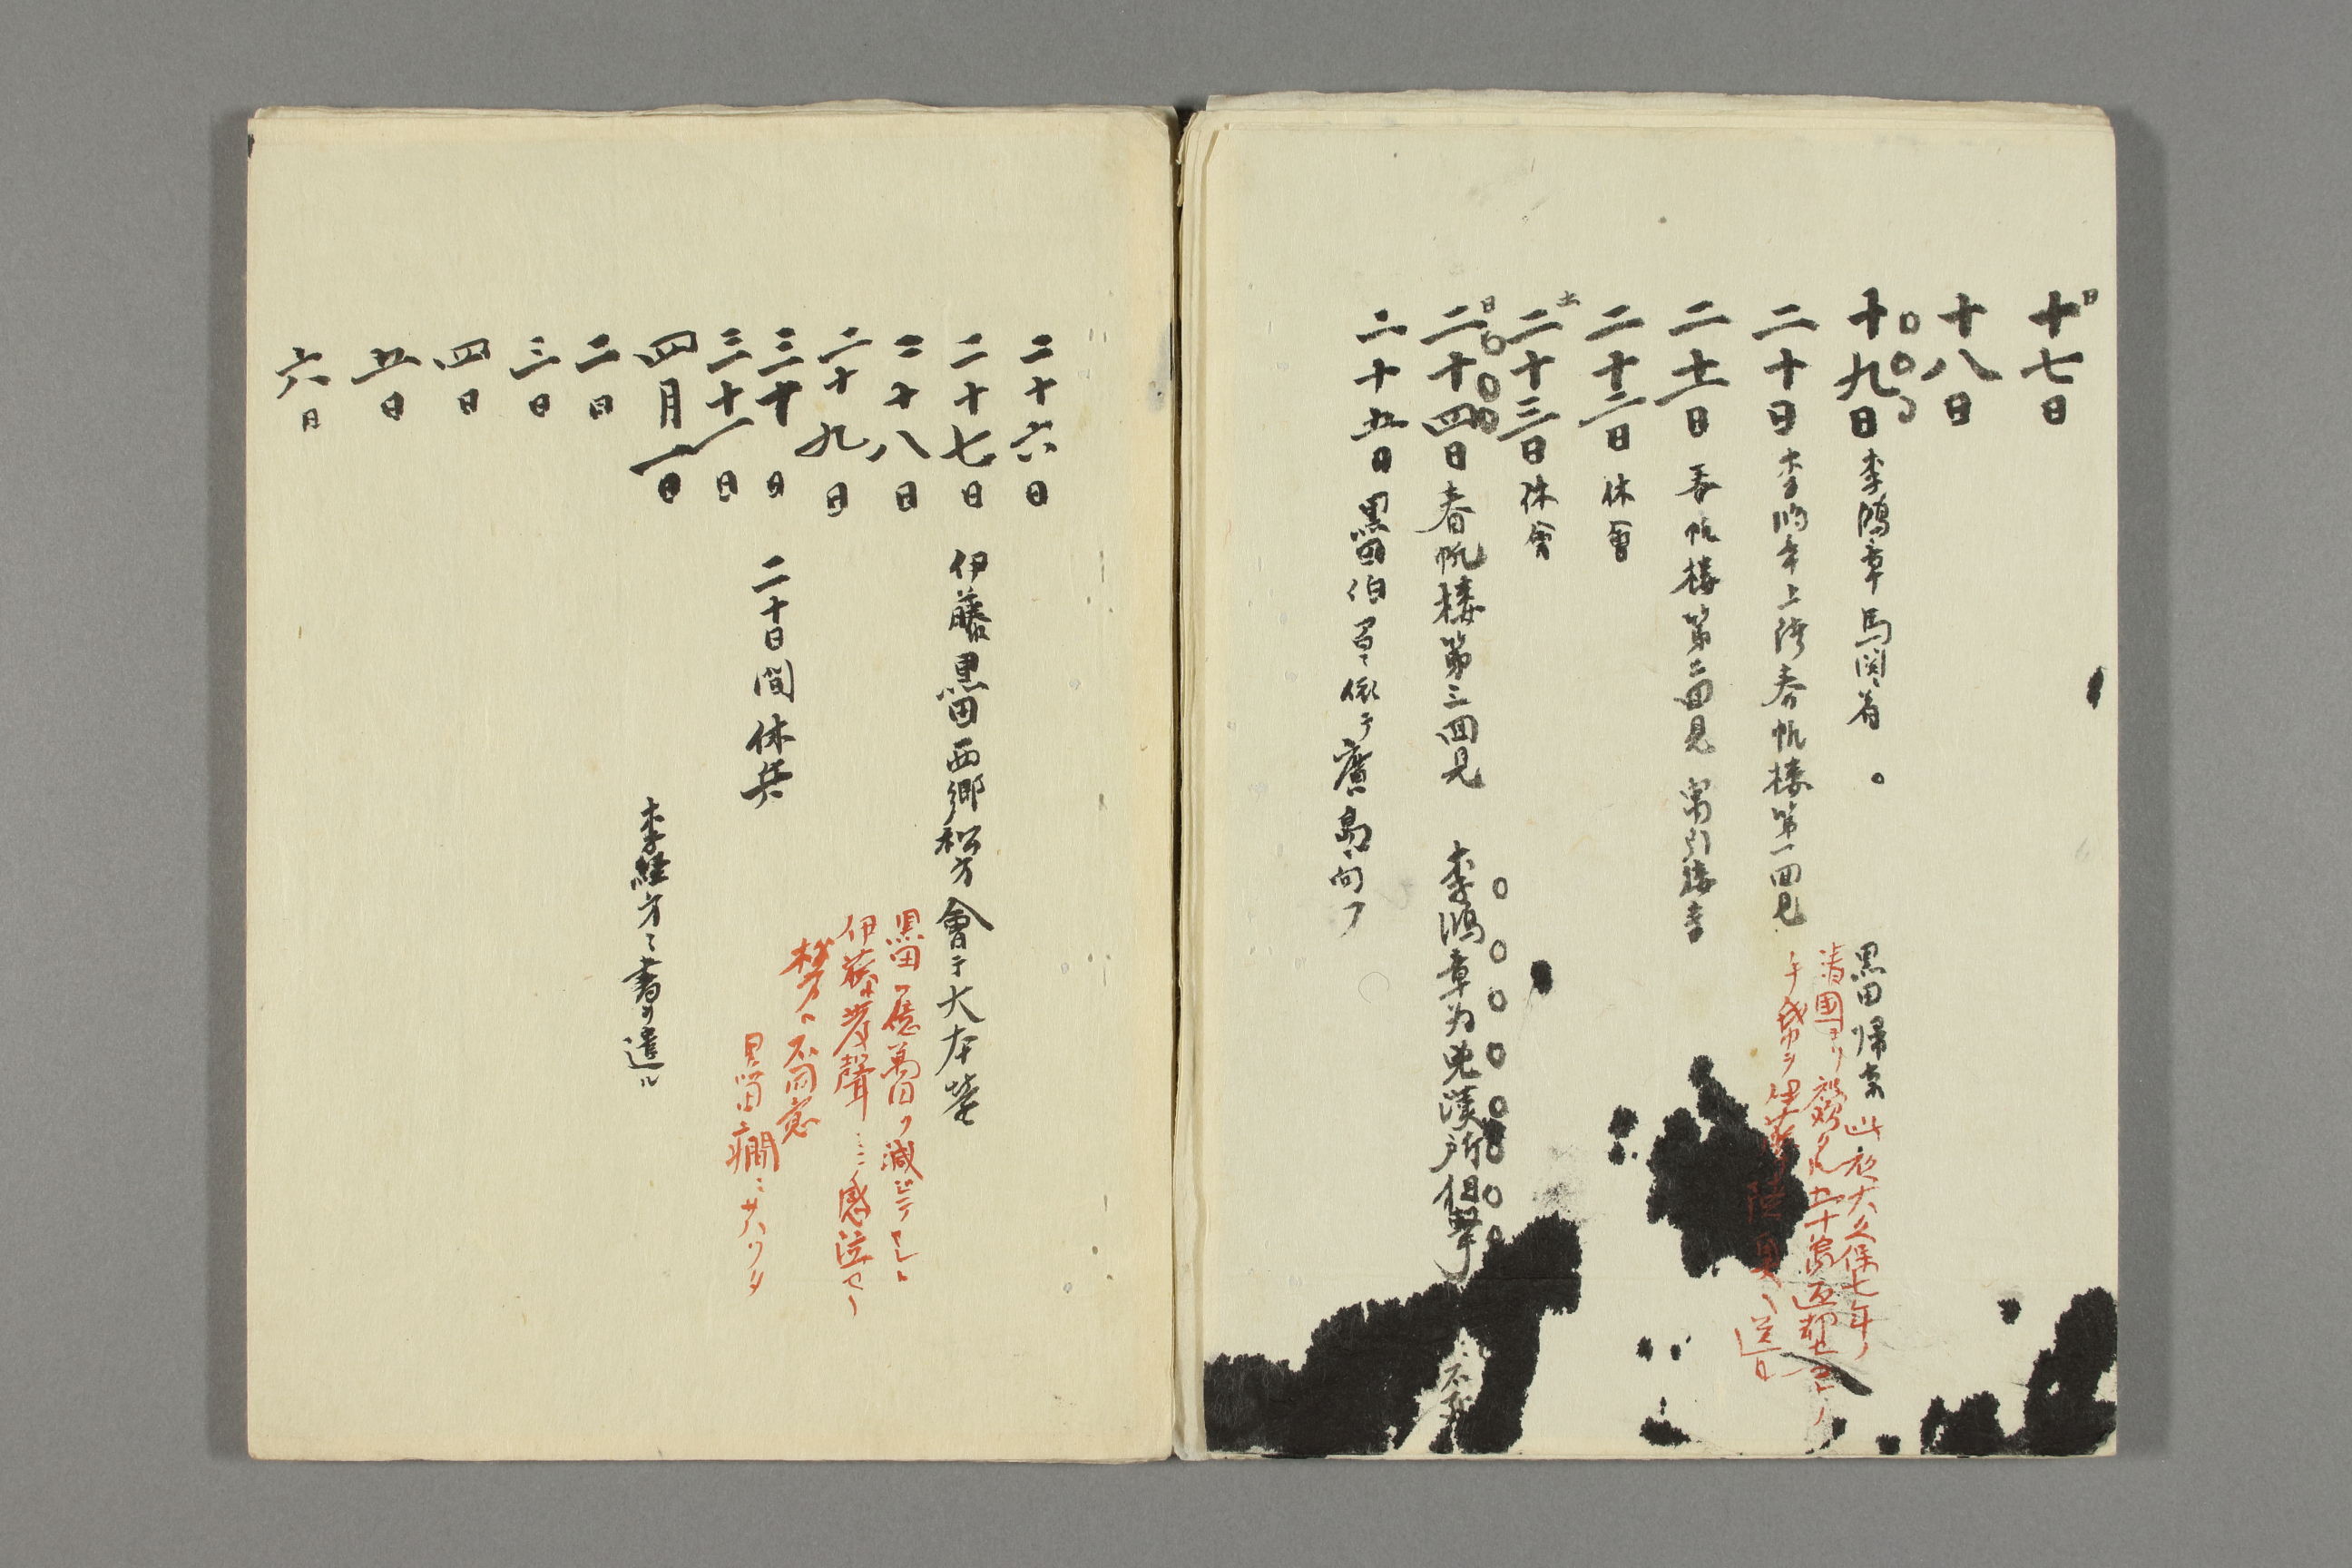 日
十七日
十八日
十九日 李鴻章馬関着
黒田帰京 此夜大久保七年ノ
清國ヨリ 五十萬返却セ
二十日 李鴻章上陸春帆楼第一回見
二十一日 春帆楼第二回見 寓引接寺
二十二日 休會
土
二十三日 休會
日
二十四日 春帆楼第三回見 李鴻章為兇漢所狙撃 不死
二十五日 黒田伯 廣島ニ向フ
二十六日
二十七日 伊藤黒田西郷松方會于大本營
二十八日
黒田一億萬円ヲ減
伊藤 聲 感泣
二十九日
松方ハ不同意
三十日 二十日間休兵
黒田ニ癇ニサハリタ
三十一日
四月一日 李経方ニ書ヲ遣ル
二日
三日
四日
五日
六日